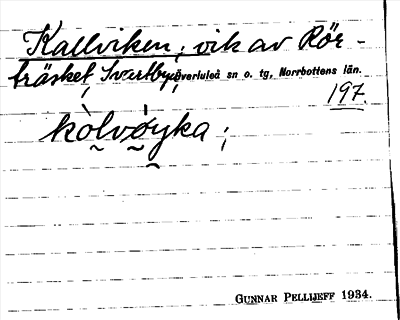 Kallviken; vik av Rör-
träsket, Svartbyn, Överluleå sn o. tg, Norrbottens län.
197.
kòlvóyka;
GUNNAR PELLIJEFF 1934.